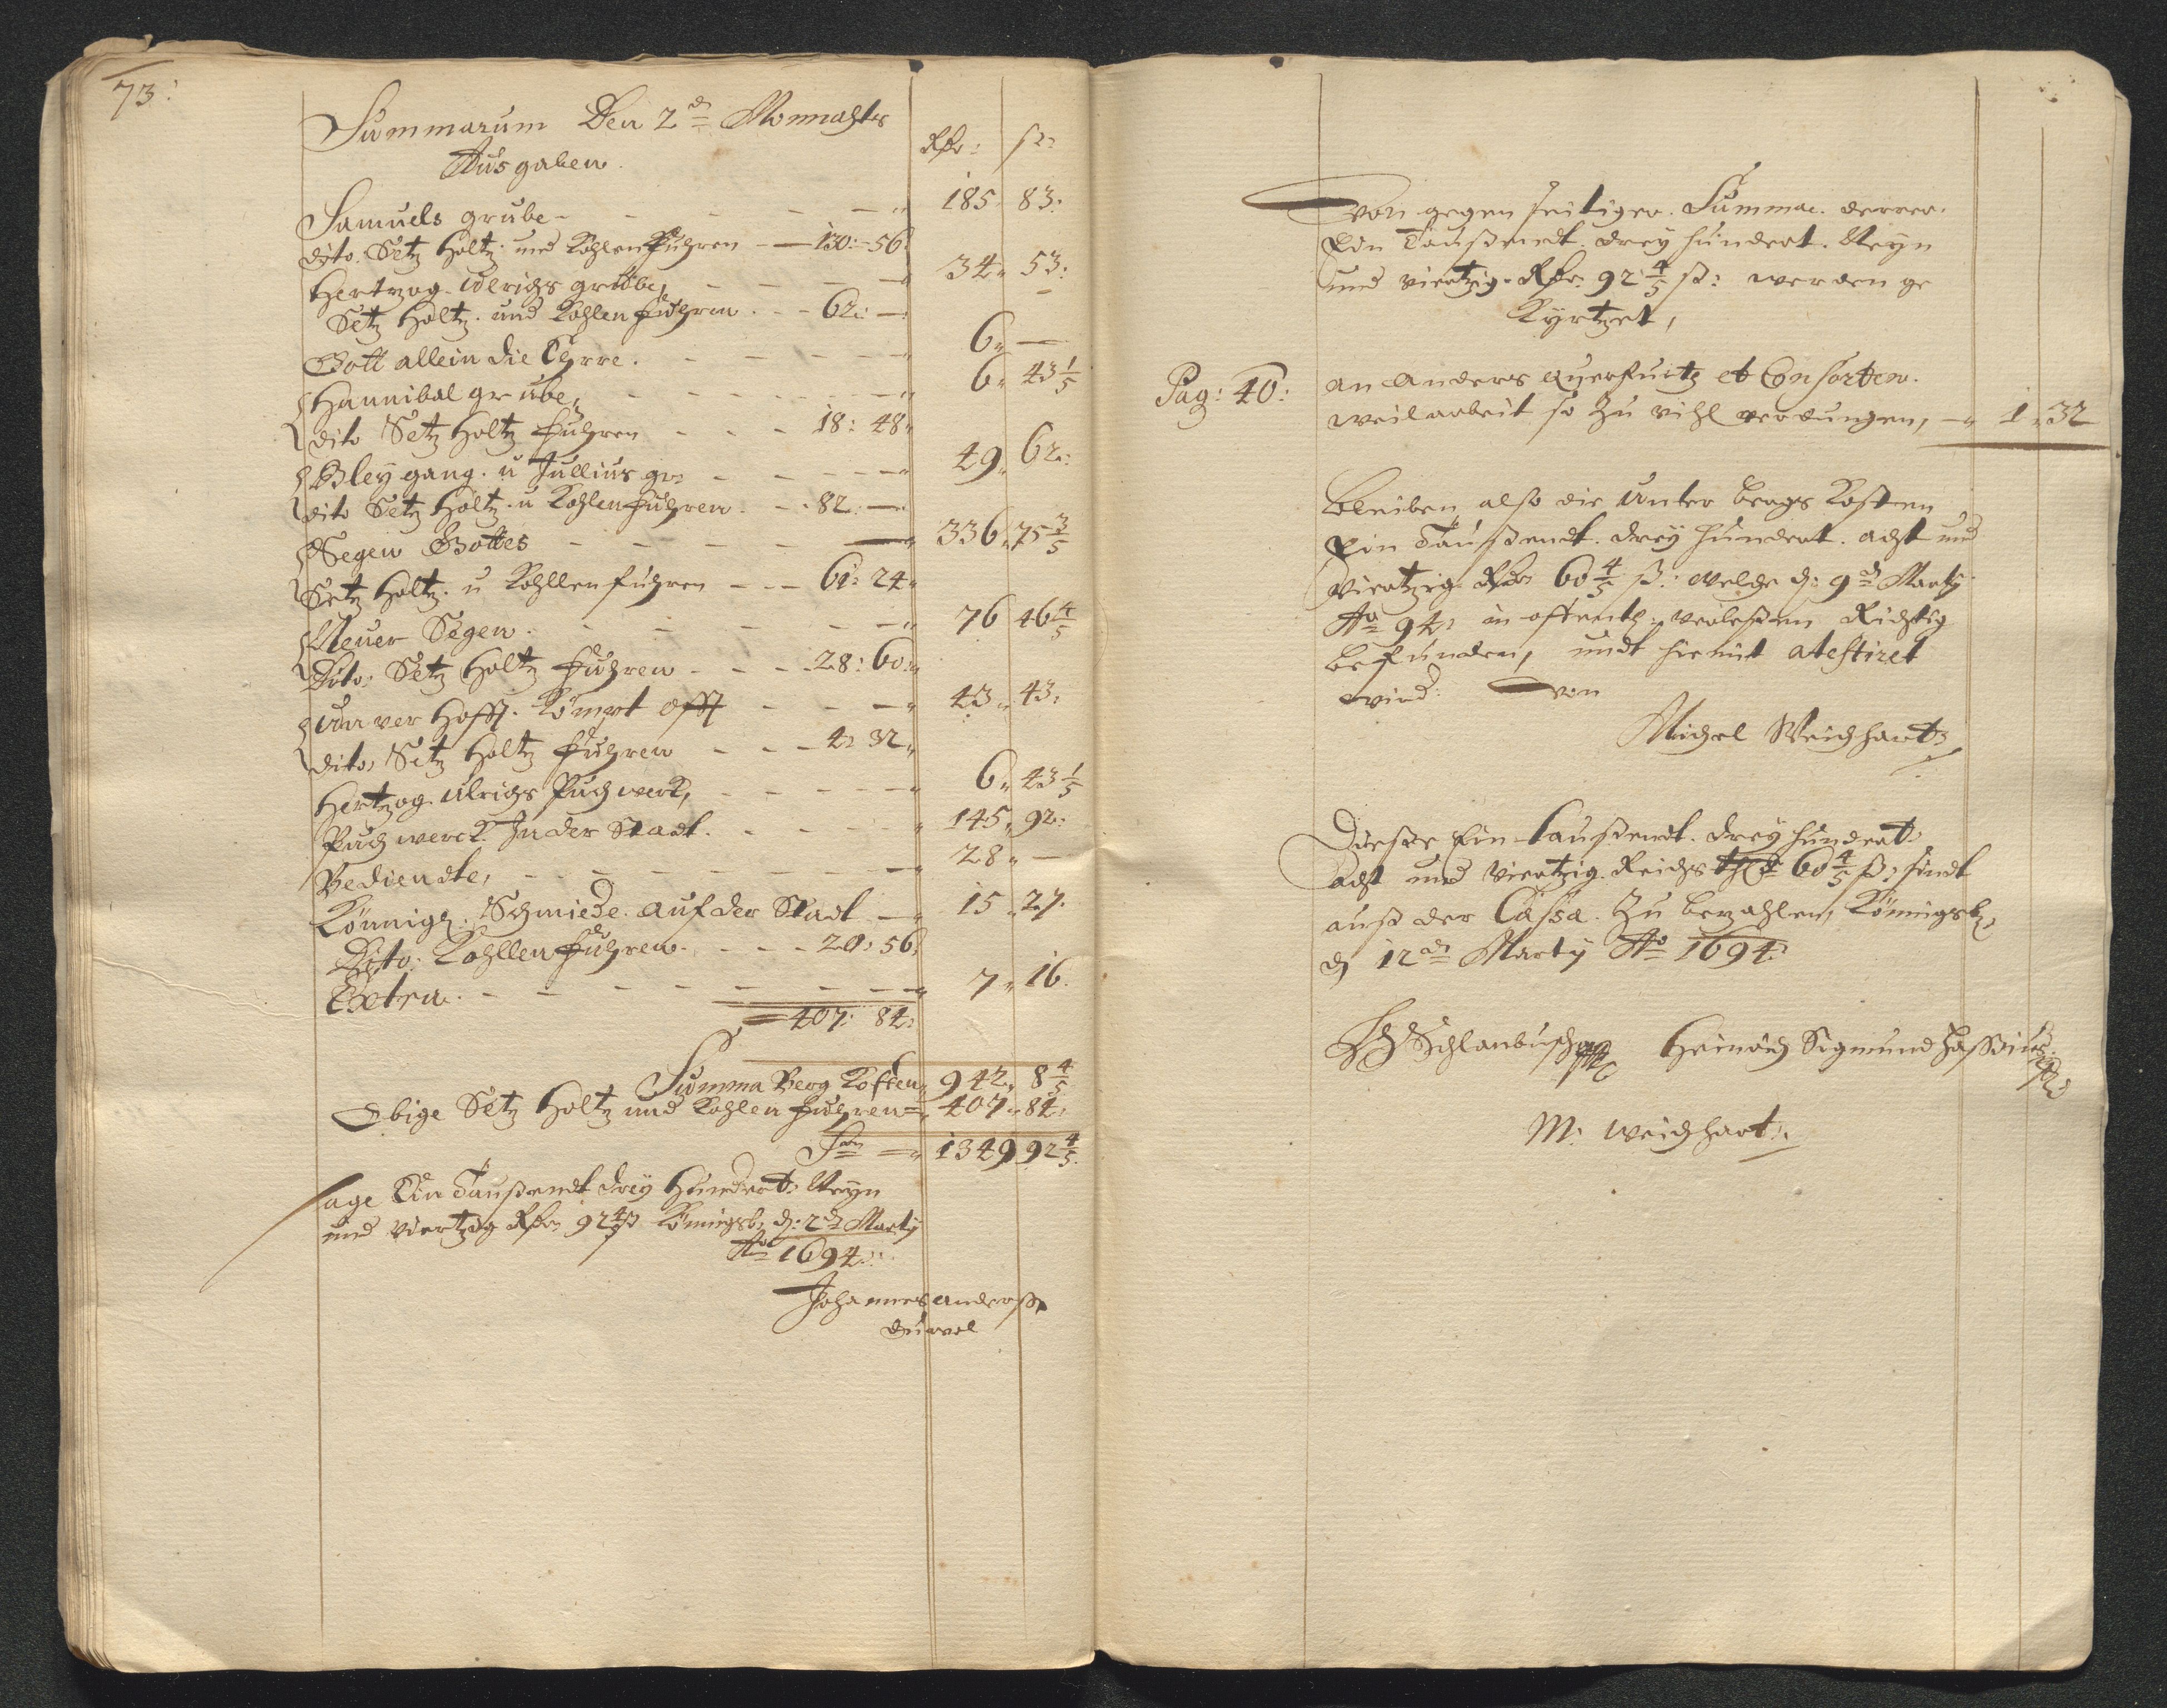 73:
Summarum Den 2dn Monnachts
Ausgaben.
Rthr: ß:
Samuels grube - - - - - „ 185. 83:
dito. Setz Holtz. und Kohlen Fuhren - - 130: 56:
Hertzog Ulrichs grube, - - - - „ 34„ 53:
Setz Holtz. und Kohlen Fuhren - - 62: —
Gott allein die Ehrre. - - - - „ 6„ —
Hannibal grube, - - - - „ 6„ 43 1/5
dito Setz Holtz Fuhren - - - 18: 48„
Bleygang. u Jullius gr: - - - - „ 49„ 62:
dito Setz Holtz. u Kohlen Fuhren. - - 82: —
Segen Gottes - - - - - „ 336„ 75 3/5
Setz Holtz. u Kohllen fuhren - - - 61: 24„
Neuer Segen. - - - - - „ 76 46 4/5
Dito: Setz Holtz Fuhren - - - 28: 60:„
Un ver Hofft. Kömpt offt - - - „ 43„ 43:
dito, Setz Holtz Fuhren - - - 4: 32„
Hertzog Ulrichs Puchwerk, - - - - - „ 6„ 43 1/5
Puchwerck. In der Stadt. - - - - „ 145„ 92:
Bediendte, - - - - - - - „ 28„ —
Königl: Schmiede. auf der Stadt — „ 15„ 27.
Dito: Kohllen Fuhren. - - - - 20: 56:
Extra. - - - - - - - „ 7„ 16.
407: 84:
Summa Berg Kosten„ 942„ 8 4/5
Obige Setz Holtz und Kohlen Fuhren=„ 407„ 84:
Sa = „ 1349 92 4/5.
sage Ein Taußendt drey Hundert: Neyn
und viertzig Rthr 92 4/5 ß Königsb: d: 2dn Marty
Ao 1694::
Johannes Andreaß
Düvel
Von gegen seitiger. Summae. derer.
Ein Taußendt. drey hundert. Neyn
und viertzig. Rthr. 92 4/5 ß: werden ge
Kyrtzet,
Pag: 40: an Anders Querfurtz et Consorten.
weilarbeit so zu vihl verdungen, — „ 1„ 32
Bleiben also die Unter bergs Kosten
Ein Taußendt. drey hundert. acht und
Viertzig Rthr 60 4/5 ß: welche d: 9dn Marty
Ao 94: in offentl: verleßen Richtig
befunden, undt hiemit atestiret
wird: Von
Michel Weichhart:
Dießee Ein taußendt. drey hundert
acht und Viertzig. Reichs thr 60 4/5 ß: sindt
auß der Cassa. zu bezahlen, Königsb:
d 12dn Marty Ao 1694:
H Schlanbusch Heinrich Sigmund Hassius
M: Weichhart: